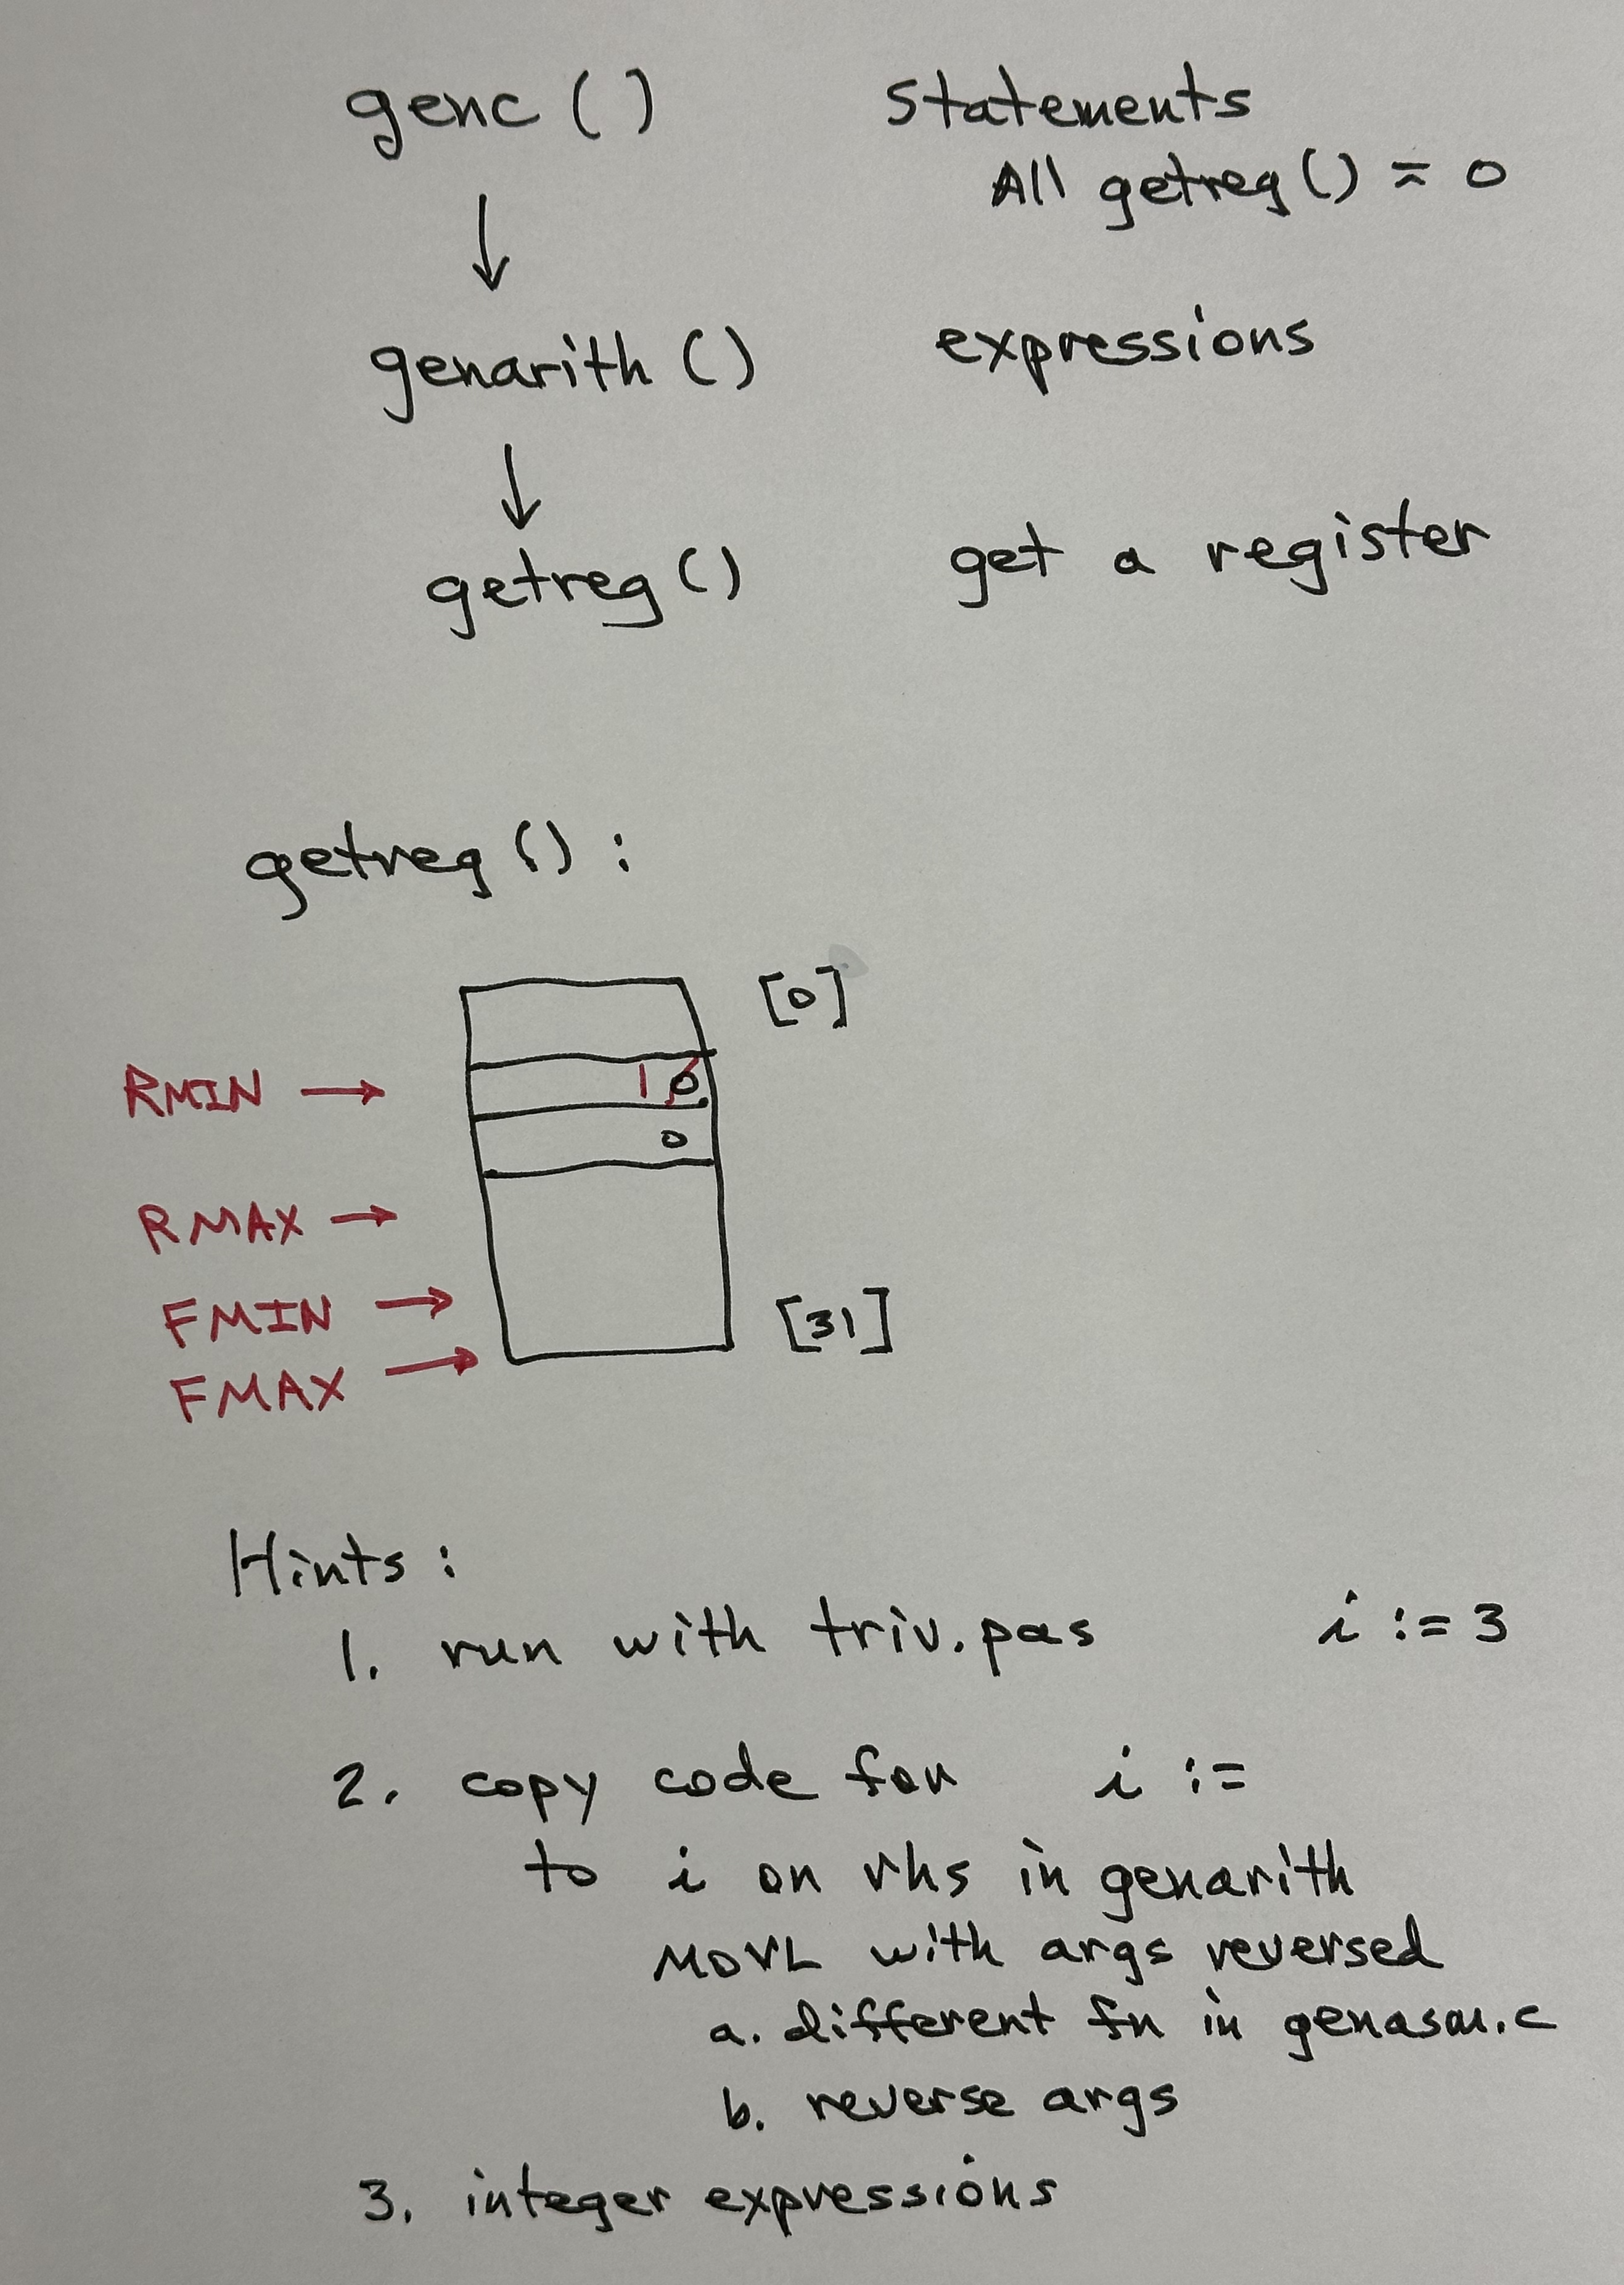 genc ( ) Statements
All getreg ( ) = 0
genarith ( ) expressions
getreg ( ) get a register
getreg ( ) :
[0]
RMIN → 1 0
0
RMAX →
FMIN → [31]
FMAX →
Hints :
1. run with triv.pas i := 3
2. copy code for i :=
to i on rhs in genarith
MOVL with args reversed
a. different fn in genasm.c
b. reverse args
3. integer expressions